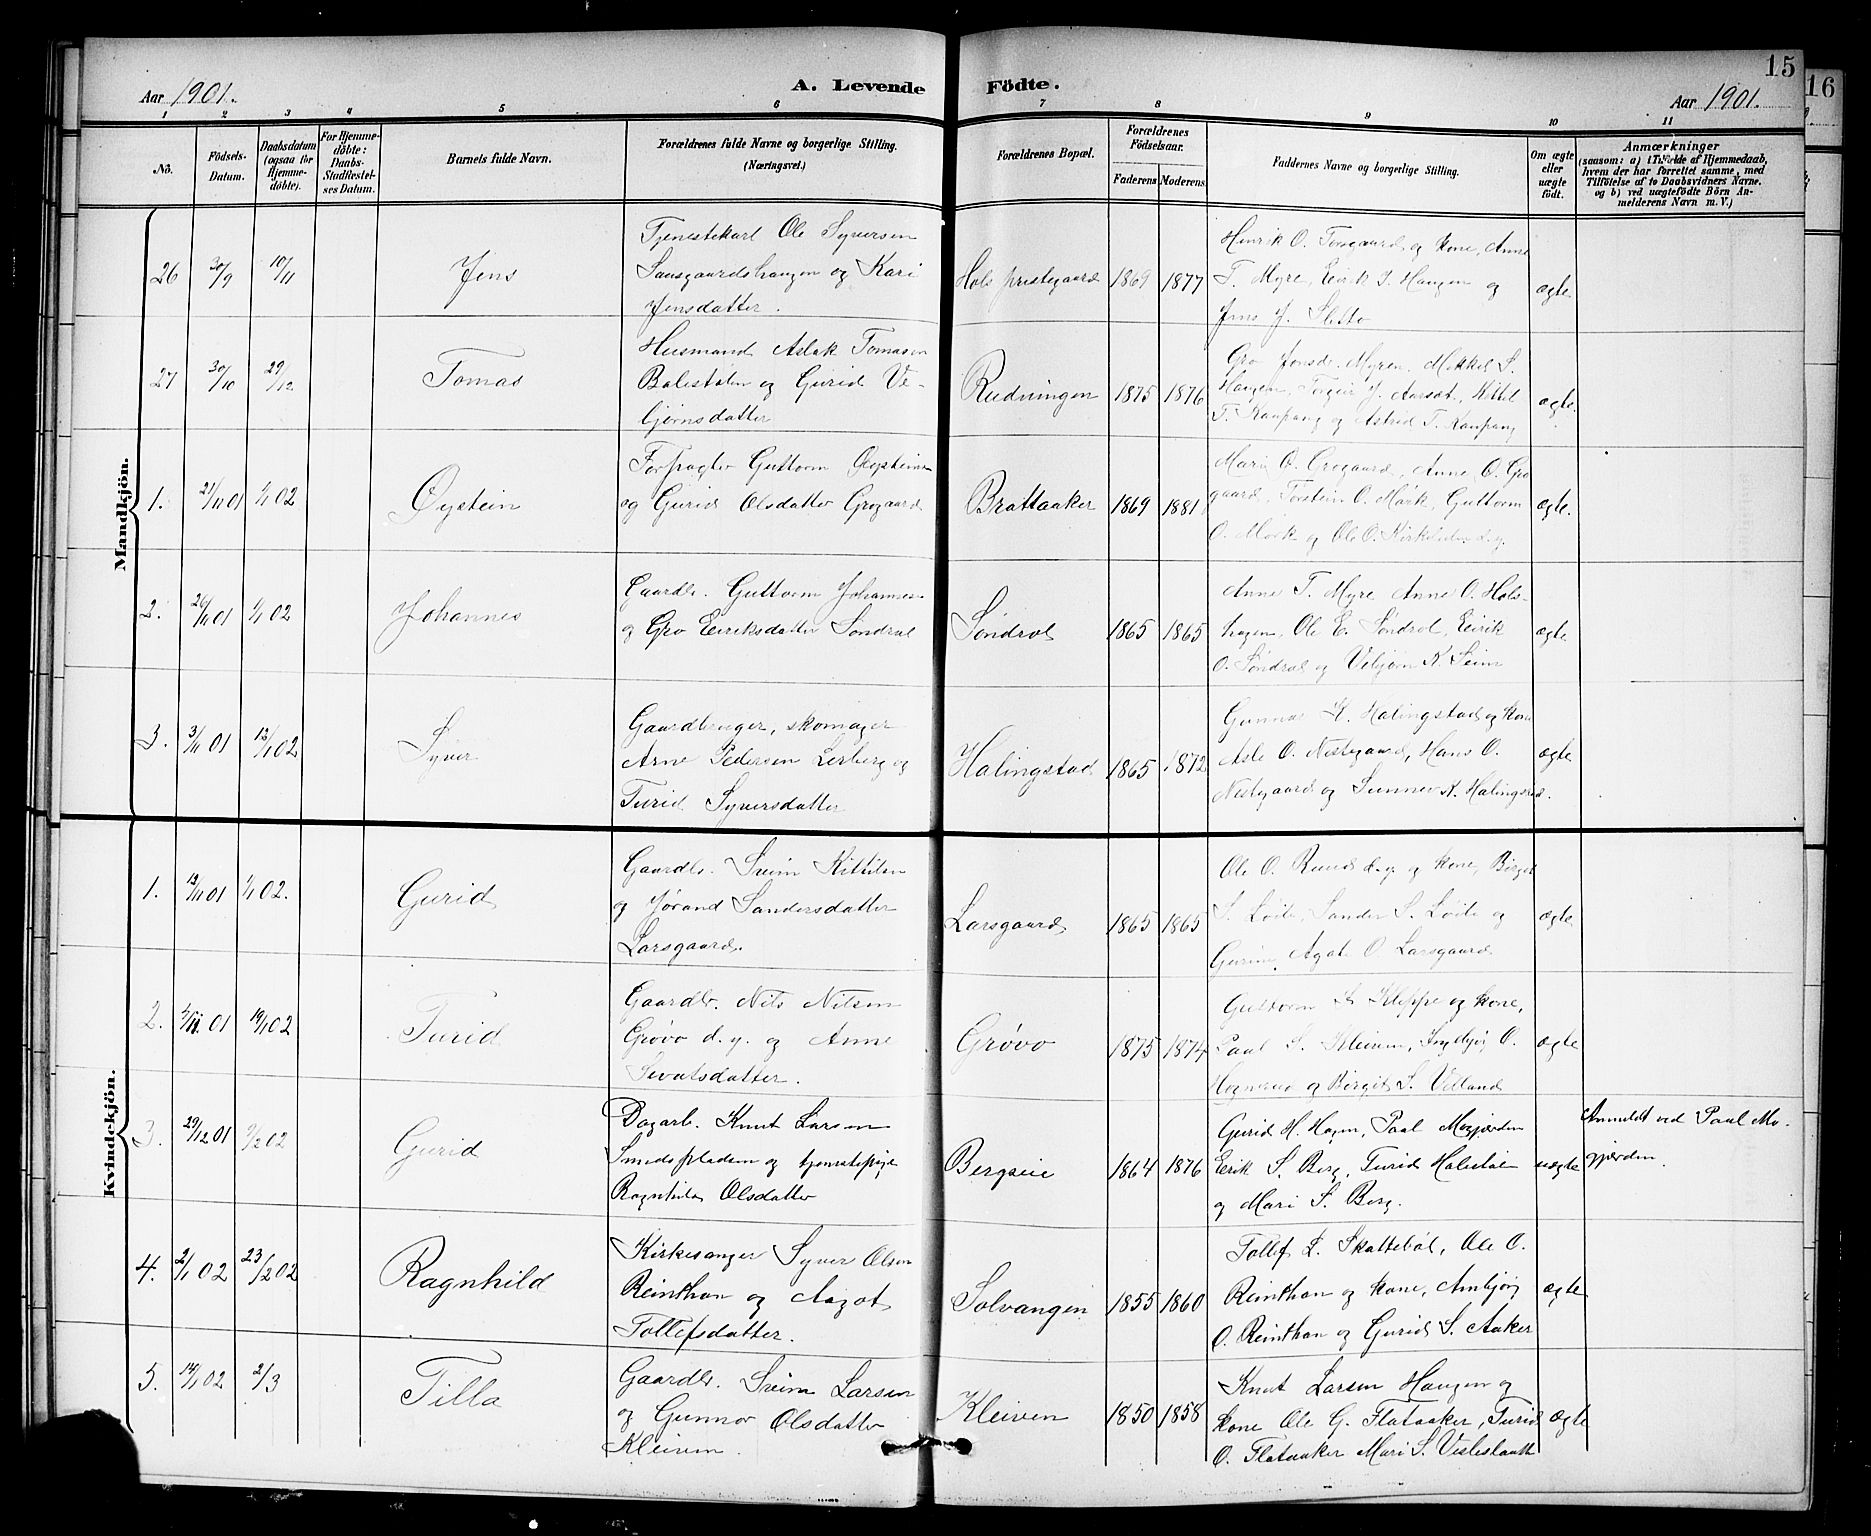 15
16
Aar 1901.
A. Levende Födte.
Aar 1901.
1 2 3 4 5 6 7 8 9 10 11
No.
Födsels-
Datum.
Daabsdatum
(ogsaa for
Hjemme-
döbte).
For Hjemme-
döbte:
Daabs-
Stadfæstel-
ses Datum.
Barnets fulde Navn.
Forældrenes fulde Navne og borgerlige Stilling.
(Næringsvei.)
Forældrenes Bopæl.
Forældrenes
Födselsaar.
Faderens Moderens
Faddernes Navne og borgerlige Stilling.
Om ægte
eller
uægte
födt.
Anmærkninger
(saasom: a) i Tilfælde af Hjemmedaab,
hvem der har forrettet samme, med
Tilföielse af to Daabsvidners Navne.
og b) ved uægtefödte Börn An-
melderens Navn m. V.)
Mandkjön.
26 30/9 10/11 Jens
Tjenestekarl Ole Syversen
Sansgaardshaugen og Kari
Jensdatter.
Hols prestegaard 1869 1877
Henrik O. Torsgaard og kone, Anne
T. Myre, Eirik J. Haugen og
Jens J. Sletto
ægte
27 30/10 29/12 Tomas
Husmand Aslak Tomasen
Balestolen og Gurid Ve-
bjørnsdatter
Rudningen 1875 1876
Gro Jonsd. Myren, Mikkel S.
Haugen, Torgeir J. Aarset, Kittel
T. Kaupang og Astrid T. Kaupang
ægte.
1. 21/11 01 1/1 02 Øystein
Forpagter Guttorm Øysteins.
og Gurid Olsdatter Grogaard
Brattaaker 1869 1881
Mari O. Grogaard, Anne O. Gro
gaard, Torstein O. Mørk, Guttorm
O. Mørk og Ole O. Kirkelien d. y.
ægte.
2. 26/11 01 1/1 02 Johannes
Gaardbr. Guttorm Johannes.
og Gro Eiriksdatter Søndrol
Søndrol 1865 1865
Anne T. Myre Anne O. Hols-
hagen, Ole E. Søndrol, Eirik
O. Søndrol og Vebjørn K. Seim
ægte
3. 3/11 01 12/1 02 Syver
Gaardbruger, skomager
Arne Pedersen Lerberg og
Turid Syversdatter
Halingstad 1865 1872
Gunnar K. Halingstad og kone
Asle O. Nestegaard, Hans O.
Nestegaard og Sunnev K. Halingstad.
ægte
Kvindekjön.
1. 12/11 01 1/1 02. Gurid
Gaardbr. Svein Kittilsen
og Jørand Sandersdatter
Larsgaard.
Larsgaard 1865 1865
Ole O. Ruud d. y. og kone, Birgit
S. Løite, Sander S. Løite og
Agate O. Larsgaard
ægte
2. 01 19/1 02 Turid
Gaardbr. Nils Nilsen
Grøvo d. y. og Anne
Sevatsdatter.
Grøvo 1875 1874
Guttorm K. Kleppe og kone,
Paul S. Kleiven, Ingebjør O.
og Birgit S. Villand
ægte
3. 29/12 01 9/2 02 Gurid
Dagarb. Knut Larsen
Smedspladsen og tjenestepige
Ragnhild Olsdatter
Bergseie 1864 1876
Gurid H. Hagen, Paal Mogjerden
Eirik S. Berg, Turid Halestølen
og Mari S. Berg.
uægte
Anmeldt ved Paal Mo-
gjerden.
4. 2/1 02 23/2 02 Ragnhild
Kirkesanger Syver Olsen
Reinthon og Aagot
Tollefsdatter.
Solvangen 1855 1860
Tollef L. Skattebøl, Ole O.
Reinthon og kone, Ambjør
O. Reinthon og Gurid S. Aaker
ægte
5. 14/1 02 2/3 Tilla
Gaardbr. Svein Larsen
og Gunnor Olsdatter
Kleiven.
Kleiven 1850 1858
Knut Larsen Haugen og
kone Ole G. Flataaker, Turid
O. Flataaker Mari S. Vesleslaatt
ægte